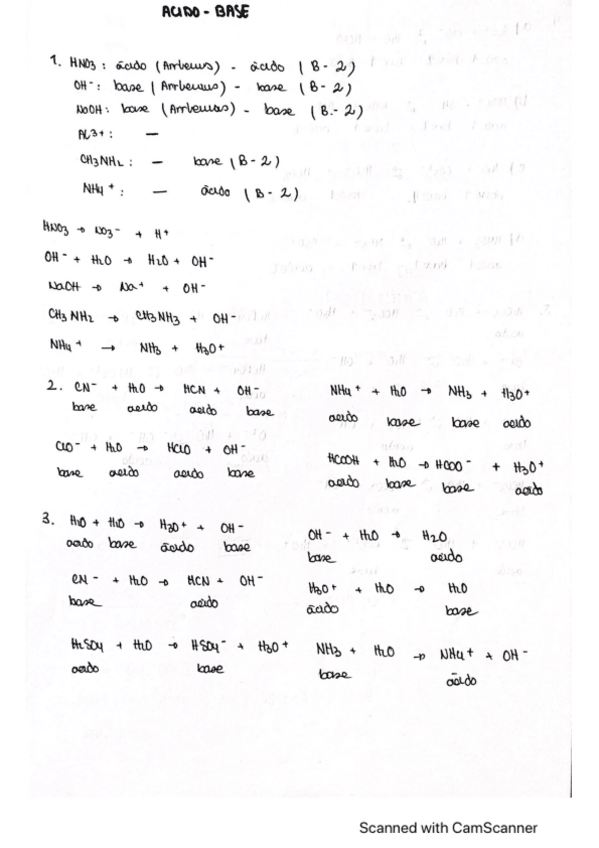 ACIDO - BASE
1. HNO3 : ácido (Arrhenius) - ácido (B - 2)
OH- : base (Arrhenius) - base (B - 2)
NaOH : base (Arrhenius) - base (B - 2)
Al3+ : —
CH3NH2 : — base (B - 2)
NH4+ : — ácido (B - 2)
HNO3 → NO3- + H+
OH- + H2O → H2O + OH-
NaOH → Na+ + OH-
CH3NH2 → CH3NH3 + OH-
NH4+ → NH3 + H3O+
2. CN- + H2O → HCN + OH-
base acido acido base
NH4+ + H2O → NH3 + H3O+
acido base base acido
ClO- + H2O → HClO + OH-
base acido acido base
HCOOH + H2O → HCOO- + H3O+
acido base base acido
3. H2O + H2O → H3O+ + OH-
acido base ácido base
OH- + H2O → H2O
base acido
CN- + H2O → HCN + OH-
base acido
H3O+ + H2O → H2O
ácido base
H2SO4 + H2O → HSO4- + H3O+
acido base
NH3 + H2O → NH4+ + OH-
base ácido
Scanned with CamScanner